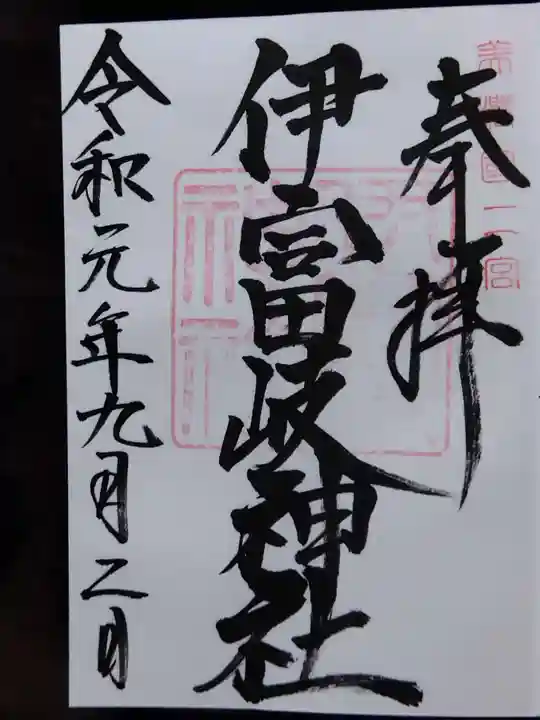 美濃国二宮
奉拝
伊富岐神社
令和元年九月二日